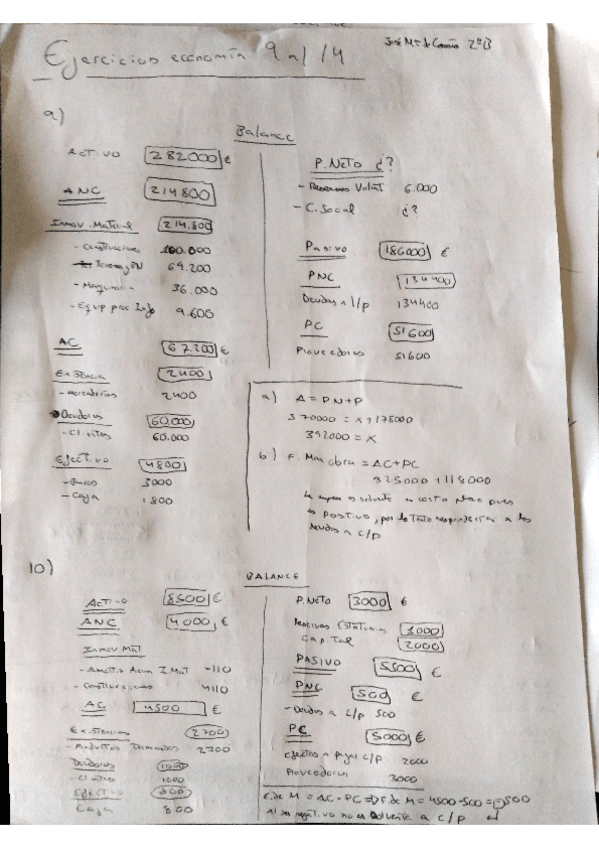 José Mª de 2ºB
Ejercicios economía 9 al 14
9)
Balance
Activo 282000 €
ANC 214800
Inmov. Material 214.800
- Construcciones 100.000
69.200
- Maquinaria 36.000
- Equip proc Info 9.600
AC 67.200 €
Existencia 2400
- mercaderías 2400
Deudores 60.000
- Clientes 60.000
Efectivo 4800
- Banco 3000
- Caja 1800
P. Neto ¿?
- Reservas Volunt 6.000
- C. Social ¿?
Pasivo 186000 €
PNC 134400
Deudas a l/p 134400
PC 51600
Proveedores 51600
a) A = PN+P
370000 = x + 178000
392000 = x
b) F. Maniobra = AC+PC
325000 + 118000
La empresa es solvente a corto plazo pues
es positivo, por lo tanto respondería a las
deudas a c/p
10)
BALANCE
Activo 8500 €
ANC 4000 €
Inmov Mat
- Amort. Acum I. Mat -110
- Construcciones 4110
AC 4500 €
Existencias 2700
- Productos Terminados 2700
Deudores 1000
- Clientes 1000
Efectivo 800
Caja 800
P. Neto 3000 €
Reservas Estatutarias 1000
Capital 2000
PASIVO 5500 €
PNC 500 €
- Deudas a l/p 500
PC 5000 €
Efectos a pagar c/p 2000
Proveedores 3000
F. de M = AC - PC => F. de M = 4500-500 = -500
al ser negativo no es solvente a c/p